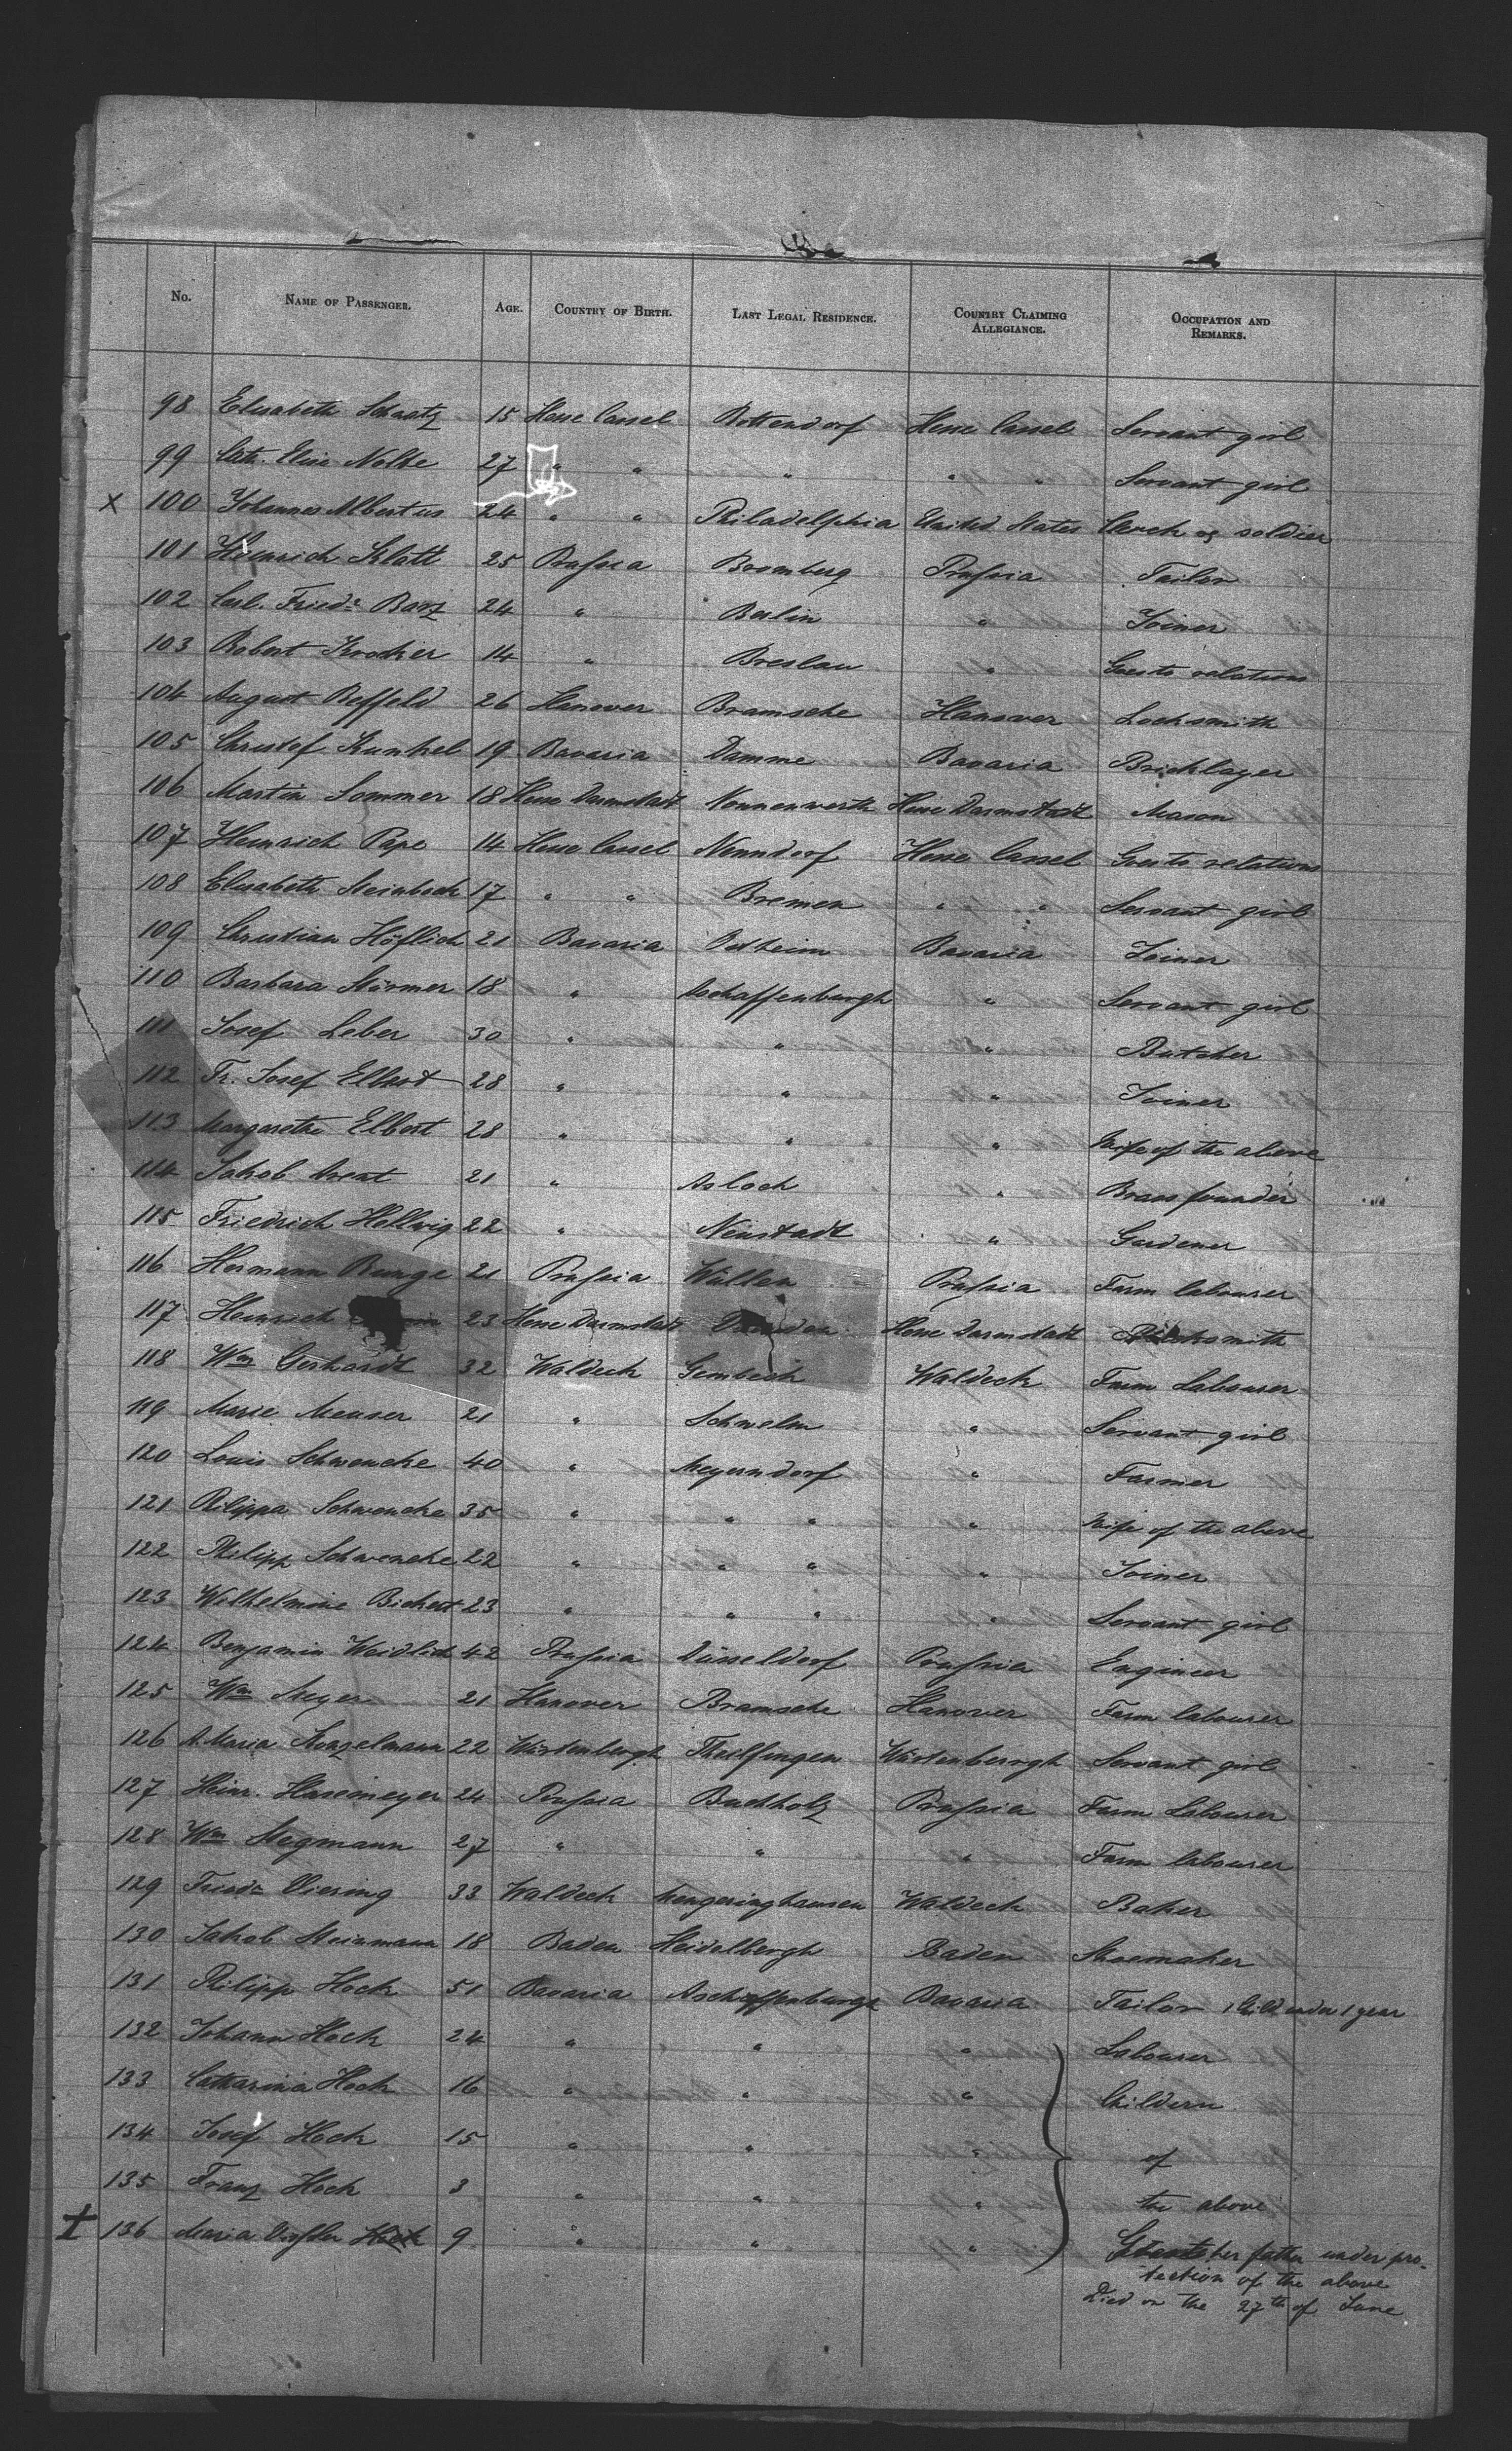 No. NAME OF PASSENGER. AGE. COUNTRY OF BIRTH. LAST LEGAL RESIDENCE. COUNTRY CLAIMING ALLEGIANCE. OCCUPATION AND REMARKS.
98 Elisabeth Schaatz 15 Hesse Cassel Bottendorf Hesse Cassel Servant girl
99 Cath. Elise Nolte 27 " " " " " Servant girl
x 100 Johannes Albertus 24 " " Philadelphia United States Clerk og soldier
101 Heinrich Klatt 25 Prussia Bromberg Prussia Tailor
102 Carl. Friedr. Barz 24 " Berlin " Joiner
103 Robert 14 " Breslau " Goes to relations
104 August Beffeld 26 Hanover Bramsche Hanover Locksmith
105 Christof Kunkel 19 Bavaria Damme Bavaria Bricklayer
106 Martin Sommer 18 Hesse Darmstadt Nonnenwerth Hesse Darmstadt Mason
107 Heinrich Pape 14 Hesse Cassel Nenndorf Hesse Cassel Goes to relations
108 Elisabeth Steinbock 17 " " Bremen " " Servant girl
109 Christian Höflich 21 Bavaria Ostheim Bavaria Joiner
110 Barbara Stürmer 18 " Aschaffenburgh " Servant girl
111 Josef Leber 30 " " " Butcher
112 Fr. Josef Elbert 28 " " " Joiner
113 Margarethe Elbert 28 " " " Wife of the above
114 Jakob 21 " Asloch " Brass founder
115 Friedrich Hellwig 22 " Neustadt " Gardener
116 Hermann Runge 21 Prussia Wüllen Prussia Farm labourer
117 Heinrich 23 Hesse Darmstadt Hesse Darmstadt Blacksmith
118 Wm Gerhardt 32 Waldeck Gembeck Waldeck Farm Labourer
119 Marie Meuser 21 " Schwelm " Servant girl
120 Louis Schwencke 40 " Meyerndorf " Farmer
121 Pilippa Schwencke 35 " " " " Wife of the above
122 Philipp Schwencke 22 " " " " Joiner
123 Wilhelmine Bickert 23 " " " " Servant girl
124 Benjamin Weidlich 42 Prussia Düsseldorf Prussia Engineer
125 Wm Meyer 21 Hanover Bramsche Hanover Farm labourer
126 A. Maria Konzelmann 22 Würtenbergh Thailfingen Würtenbergh Servant girl
127 Heinr. Hasemeyer 24 Prussia Buchholz Prussia Farm Labourer
128 Wm Stegmann 27 " " " Farm labourer
129 Friedr. Viering 33 Waldeck Mengeringhausen Waldeck Baker
130 Jakob Steinmann 18 Baden Heidelbergh Baden Shoemaker
131 Philipp Hock 51 Bavaria Aschaffenburgh Bavaria Tailor 1 Child under 1 year
132 Johann Hock 24 " " " Labourer
133 Catharina Hock 16 " " " Childern
134 Josef Hock 15 " " " of
135 Franz Hock 3 " " " the above
136 Maria Hock 9 " " " her father under pro-
tection of the above
Died on the 27th of June